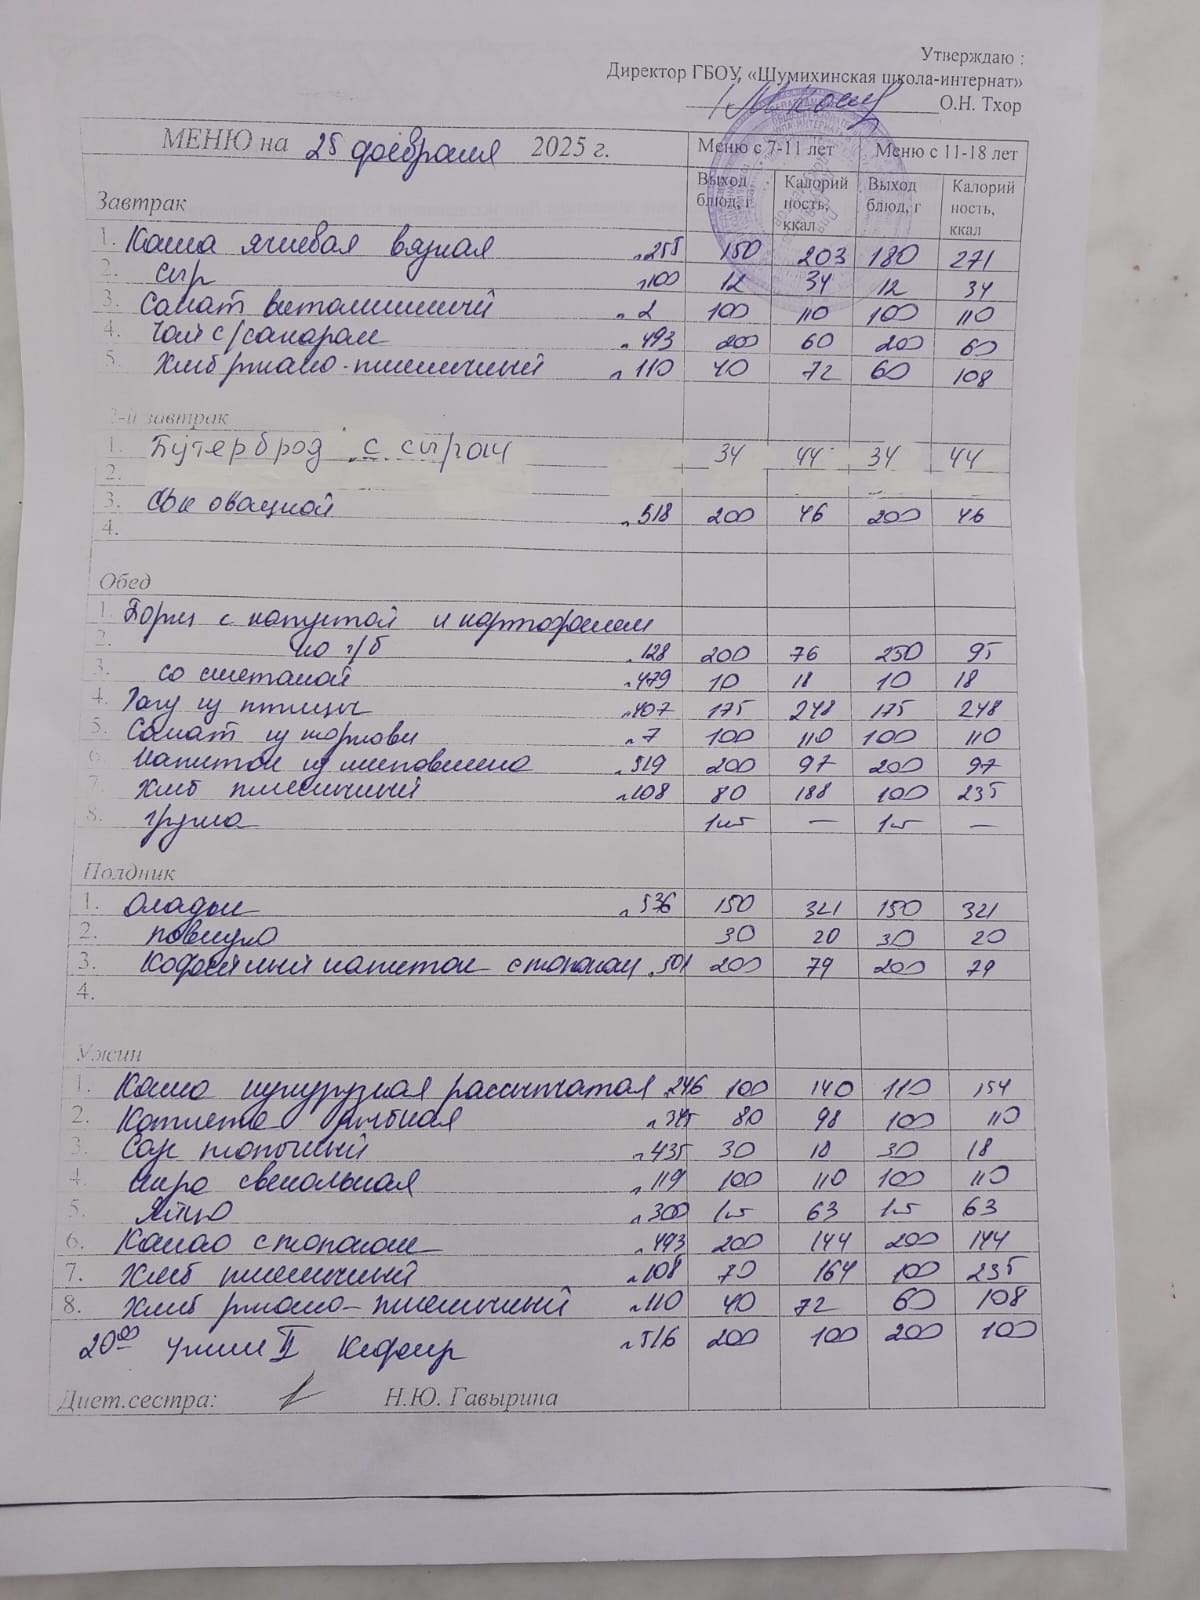 Утверждаю :
Директор ГБОУ, «Шумихинская школа-интернат»
О.Н. Тхор
МЕНЮ на 25 февраля 2025 г. Меню с 7-11 лет Меню с 11-18 лет
Завтрак Выход блюд, г Калорий ность, ккал Выход блюд, г Калорий ность, ккал
1. Каша ячневая вязкая 255 150 203 180 271
2. сыр 100 12 34 12 34
3. Салат витаминный 2 100 110 100 110
4. Чай с/сахаром 493 200 60 200 60
5. Хлеб ржано-пшеничный 110 40 72 60 108
2-й завтрак
1. Бутерброд с сыром 34 44 34 44
2.
3. Сок овощной 518 200 46 200 46
4.
Обед
1. Борщ с капустой и картофелем
2. на к/б 128 200 76 250 95
3. со сметаной 479 10 18 10 18
4. Рагу из птицы 407 175 248 175 248
5. Салат из моркови 7 100 110 100 110
6. Напиток из шиповника 519 200 97 200 97
7. Хлеб пшеничный 108 80 188 100 235
8. груша 1шт — 1шт —
Полдник
1. Оладьи 536 150 321 150 321
2. повидло 30 20 30 20
3. Кофейный напиток с молоком 501 200 79 200 79
4.
Ужин
1. Каша кукурузная рассыпчатая 246 100 140 110 154
2. Котлета рыбная 345 80 98 100 110
3. Соус молочный 435 30 18 30 18
4. Икра свекольная 119 100 110 100 110
5. Яйцо 300 1шт 63 1шт 63
6. Какао с молоком 493 200 144 200 144
7. Хлеб пшеничный 108 70 164 100 235
8. Хлеб ржано-пшеничный 110 40 72 60 108
20⁰⁰ Ужин II Кефир 516 200 100 200 100
Диет.сестра: Н.Ю. Гавырина